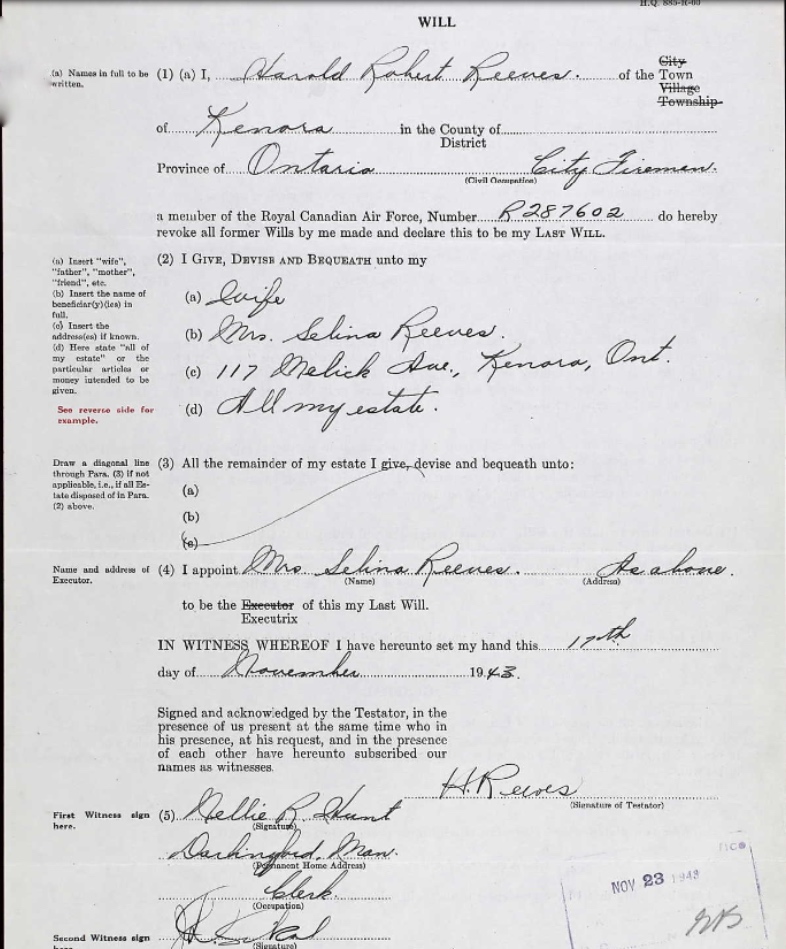 WILL
(a) Names in full to be written.
(1) (a) I, Harold Robert Reeves. of the Town
City
Village
Township
of Kenora in the County of
District
Province of Ontario City Fireman.
(Civil Occupation)
a member of the Royal Canadian Air Force, Number R287602 do hereby
revoke all former Wills by me made and declare this to be my LAST WILL.
(a) Insert "wife",
"father", "mother",
"friend", etc.
(b) Insert the name of
beneficiar(y)(ies) in
full.
(c) Insert the
address(es) if known.
(d) Here state "all of
my estate" or the
particular articles or
money intended to be
given.
See reverse side for
example.
(2) I GIVE, DEVISE AND BEQUEATH unto my
(a) Wife
(b) Mrs. Selina Reeves.
(c) 117 Melick Ave., Kenora, Ont.
(d) All my estate.
Draw a diagonal line
through Para. (3) if not
applicable, i.e., if all Es-
tate disposed of in Para.
(2) above.
(3) All the remainder of my estate I give, devise and bequeath unto:
(a)
(b)
(c)
Name and address of
Executor.
(4) I appoint Mrs Selina Reeves. As above.
(Name) (Address)
to be the Executor of this my Last Will.
Executrix
IN WITNESS WHEREOF I have hereunto set my hand this 17th
day of November 1943.
Signed and acknowledged by the Testator, in the
presence of us present at the same time who in
his presence, at his request, and in the presence
of each other have hereunto subscribed our
names as witnesses.
H. Reeves
(Signature of Testator)
First Witness sign
here.
(5) Nellie R. Hunt
(Signature)
Darlingford, Man.
(Permanent Home Address)
Clerk
(Occupation)
NOV 23 1943
Second Witness sign
here
(Signature)